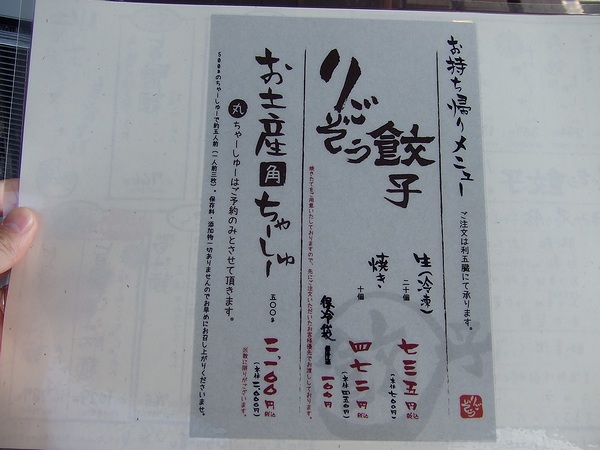 お持ち帰りメニュー
ご注文は利五臓にて承ります。
りごぞう餃子
生(冷凍)
二十個
七三五円税込
(本体七〇〇円)
焼き
十個
四七二円税込
(本体四五〇円)
保冷袋
一〇〇円
焼きたてをご用意いたしておりますので、先にご注文いただいたお客様優先でお渡ししております。
お土産角ちゃーしゅー
五〇〇g
二、一〇〇円税込
(本体二、〇〇〇円)
※数に限りがございます。
丸ちゃーしゅーはご予約のみとさせて頂きます。
500gのちゃーしゅーで約五人前(一人前三枚)・保存料・添加物一切ありませんのでお早めにお召し上がりくださいませ。
りごぞう